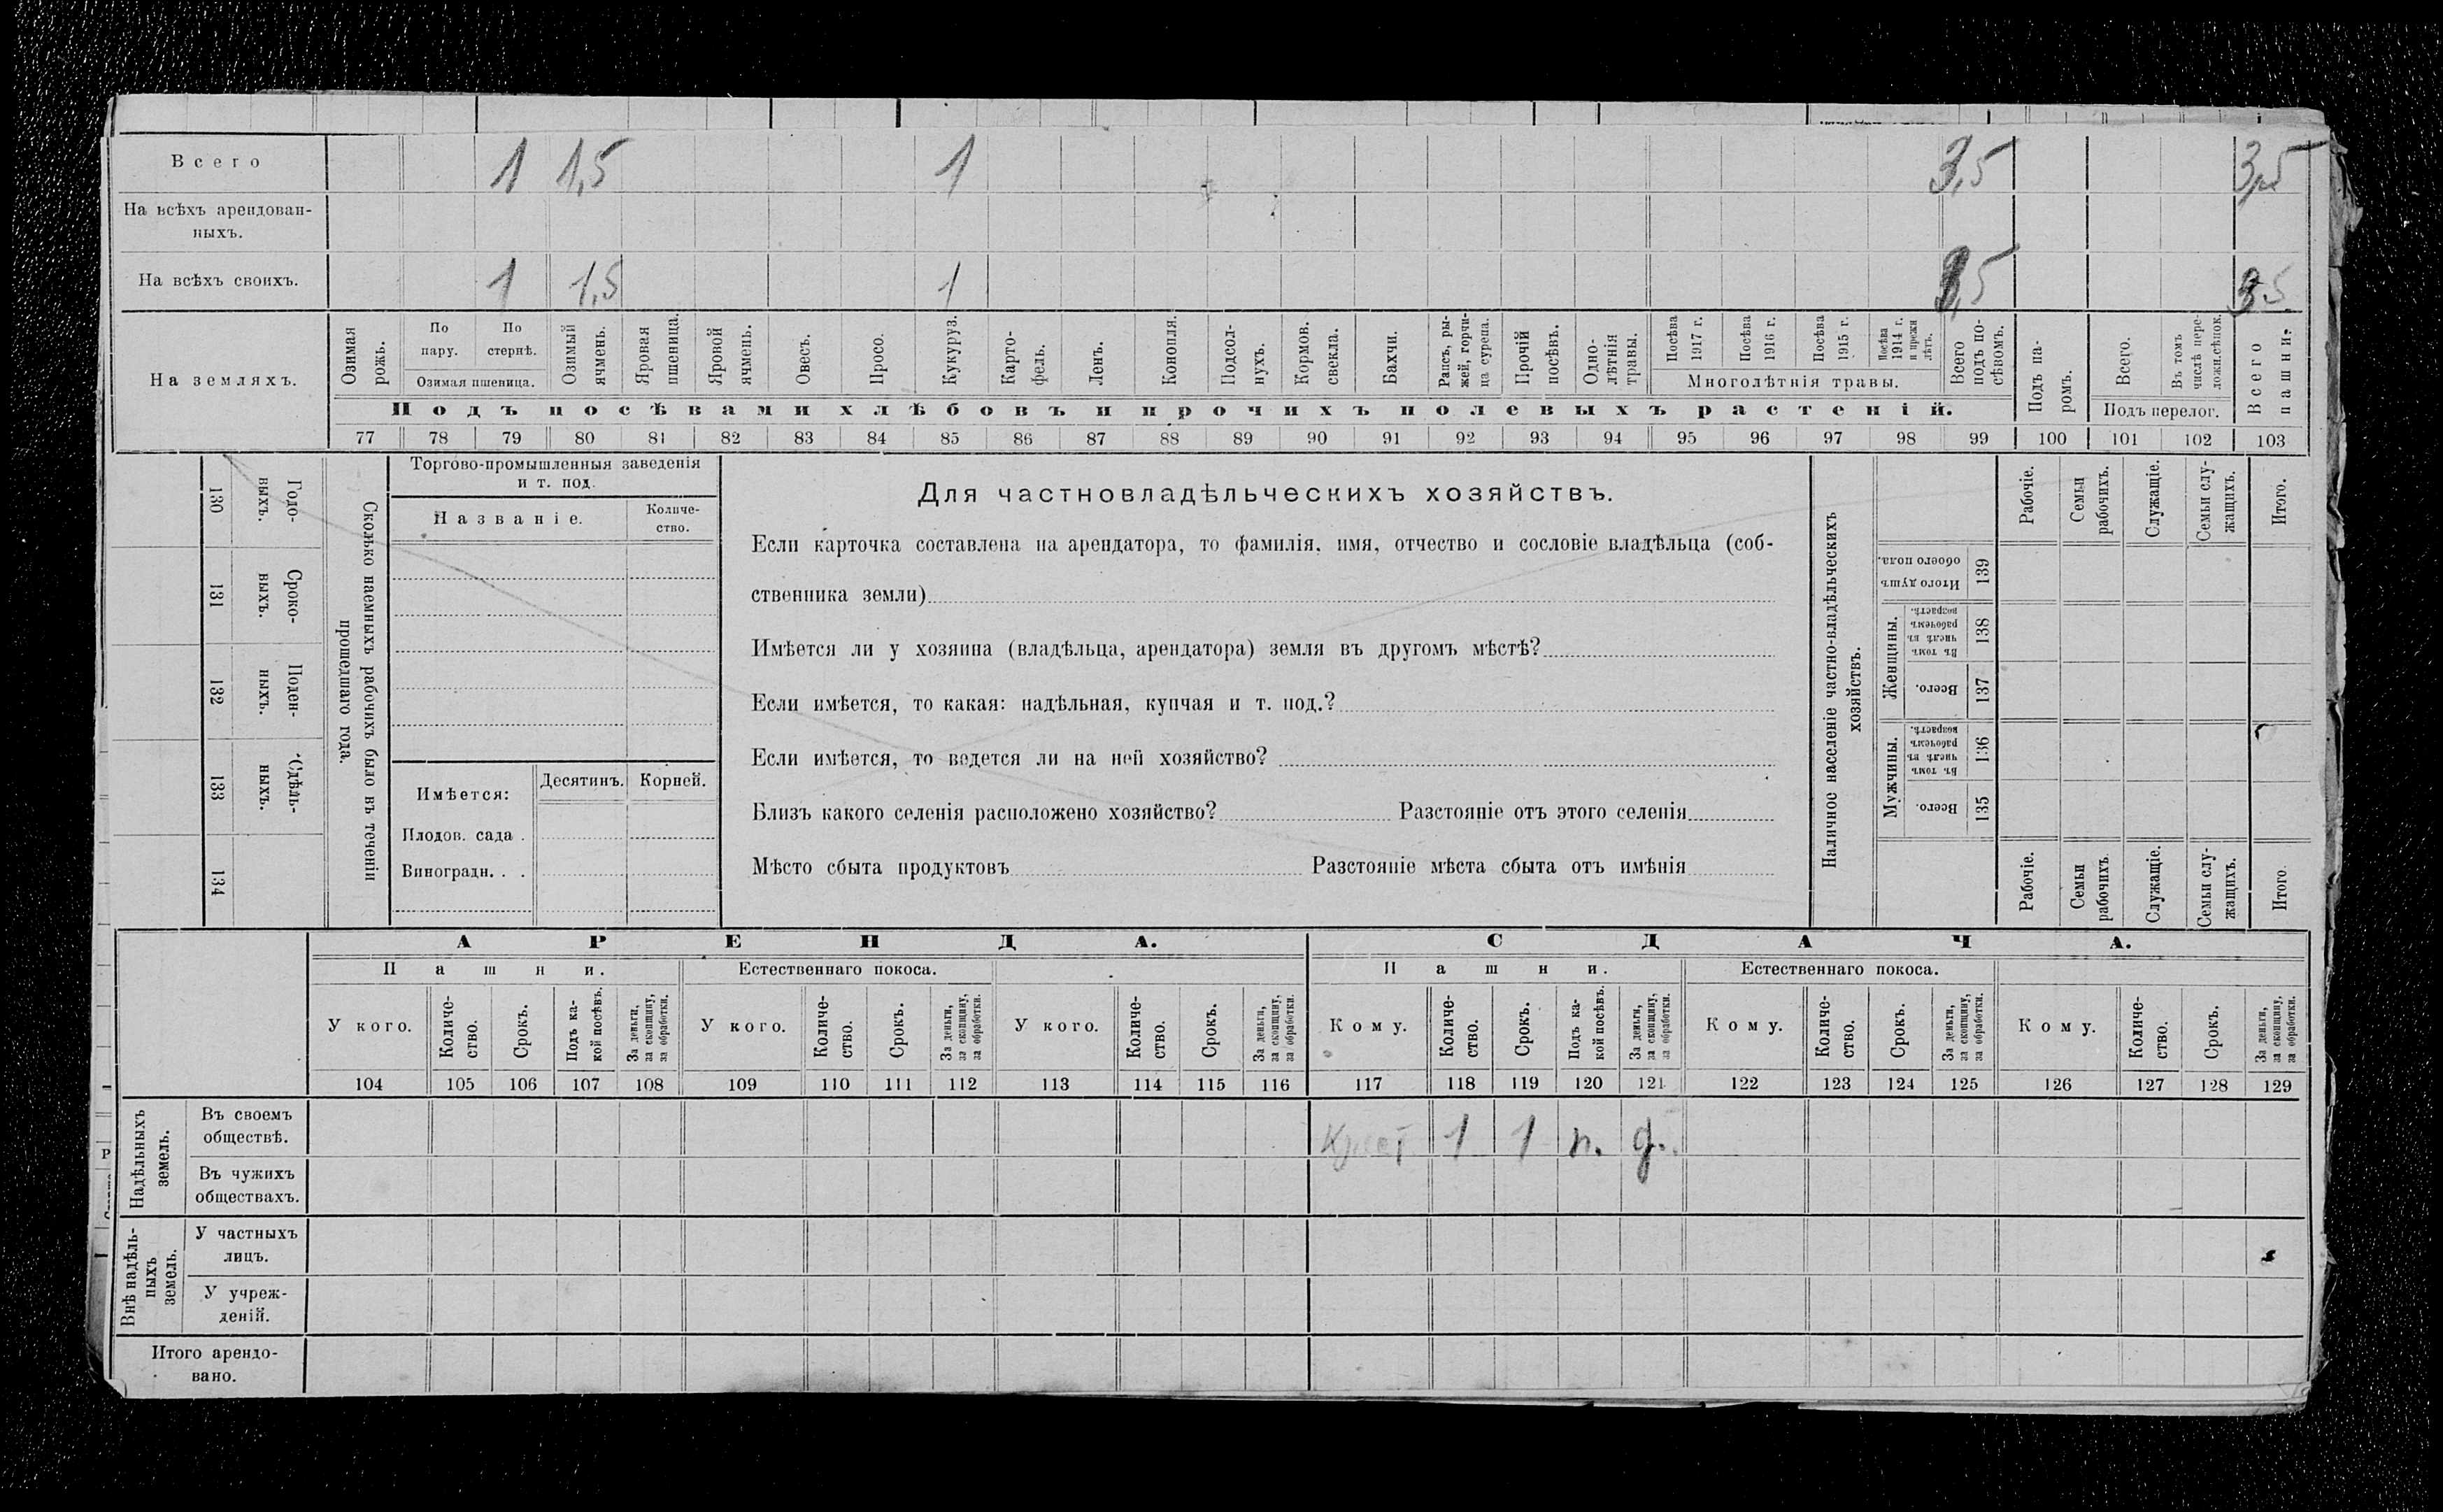 Всего 1 1,5 1 3,5 3,5
На всѣхъ арендован-
ныхъ.
На всѣхъ своихъ. 1 1,5 1 3,5 3,5
На земляхъ.
Озимая рожь.
По пару.
По стернѣ.
Озимая пшеница.
Озимый ячмень.
Яровая пшеница.
Яровой ячмень.
Овесъ.
Просо.
Кукуруз.
Карто-
фель.
Ленъ.
Конопля.
Подсол-
нухъ.
Кормов. свекла.
Бахчи.
Рапсъ, ры-
жей, горчи-
ца сурепа.
Прочій посѣвъ.
Одно-
лѣтнія
травы.
Посѣва 1917 г.
Посѣва 1916 г.
Посѣва 1915 г.
Посѣва 1914 г. и прежн лѣтъ.
Многолѣтнія травы.
Всего подъ по-
сѣвомъ.
Подъ па-
ромъ.
Всего.
Въ томъ числѣ пере-
ложн.сѣнок.
Подъ перелог.
Всего пашни.
Подъ посѣвами хлѣбовъ и прочихъ полевыхъ растеній.
77 78 79 80 81 82 83 84 85 86 87 88 89 90 91 92 93 94 95 96 97 98 99 100 101 102 103
130 Годо-
выхъ.
131 Сроко-
выхъ.
132 Поден-
ныхъ.
133 Сдѣль-
ныхъ.
134
Сколько наемныхъ рабочихъ было въ теченіи
прошедшаго года.
Торгово-промышленныя заведенія
и т. под.
Названіе.
Количе-
ство.
Имѣется:
Десятинъ. Корней.
Плодов. сада .
Виноградн. . .
Для частновладѣльческихъ хозяйствъ.
Если карточка составлена на арендатора, то фамилія, имя, отчество и сословіе владѣльца (соб-
ственника земли)
Имѣется ли у хозяина (владѣльца, арендатора) земля въ другомъ мѣстѣ?
Если имѣется, то какая: надѣльная, купчая и т. под.?
Если имѣется, то ведется ли на ней хозяйство?
Близъ какого селенія расположено хозяйство? Разстояніе отъ этого селенія
Мѣсто сбыта продуктовъ Разстояніе мѣста сбыта отъ имѣнія
Наличное населеніе частно-владѣльческихъ
хозяйствъ.
Рабочіе.
Семьи рабочихъ.
Служащіе.
Семьи слу-
жащихъ.
Итого.
Итого душъ обоего пола. 139
Женщины.
Въ томъ числѣ въ рабочемъ возрастѣ. 138
Всего. 137
Мужчины.
Въ томъ числѣ въ рабочемъ возрастѣ. 136
Всего. 135
Рабочіе.
Семьи рабочихъ.
Служащіе.
Семьи слу-
жащихъ.
Итого.
АРЕНДА. СДАЧА.
Пашни. Естественнаго покоса. Пашни. Естественнаго покоса.
У кого.
Количе-
ство.
Срокъ.
Подъ ка-
кой посѣвъ.
За деньги,
за скопщину,
за обработки.
У кого.
Количе-
ство.
Срокъ.
За деньги,
за скопщину,
за обработки.
У кого.
Количе-
ство.
Срокъ.
За деньги,
за скопщину,
за обработки.
Кому.
Количе-
ство.
Срокъ.
Подъ ка-
кой посѣвъ.
За деньги,
за скопщину,
за обработки.
Кому.
Количе-
ство.
Срокъ.
За деньги,
за скопщину,
за обработки.
Кому.
Количе-
ство.
Срокъ.
За деньги,
за скопщину,
за обработки.
104 105 106 107 108 109 110 111 112 113 114 115 116 117 118 119 120 121 122 123 124 125 126 127 128 129
Надѣльныхъ
земель.
Въ своемъ
обществѣ. 1 1 п. д.
Въ чужихъ
обществахъ.
Внѣ надѣль-
ныхъ
земель.
У частныхъ
лицъ.
У учреж-
деній.
Итого арендо-
вано.